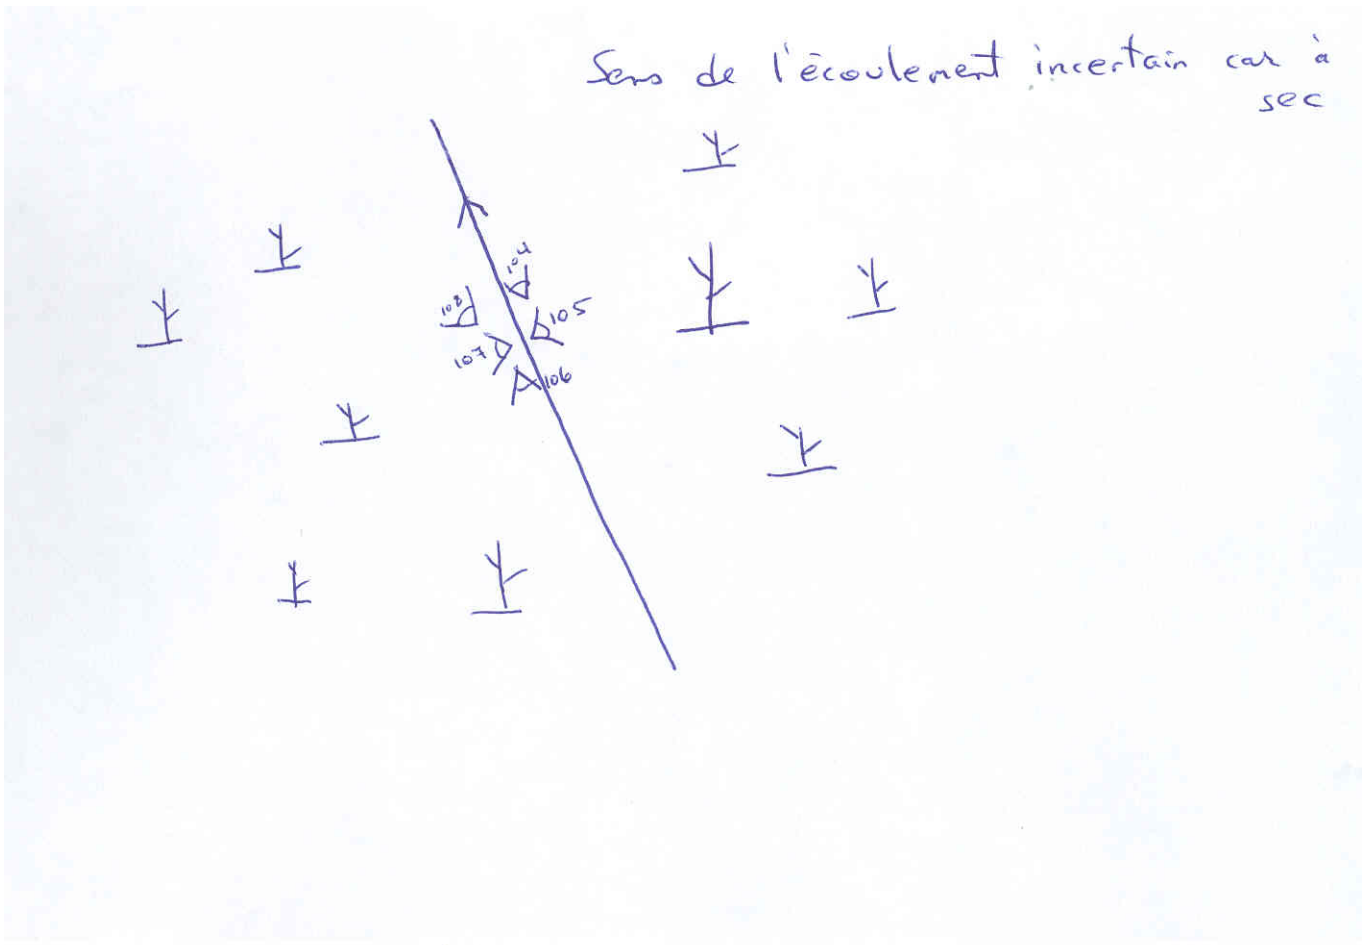 Sens de l'écoulement incertain car à
sec
104
108
105
107
106